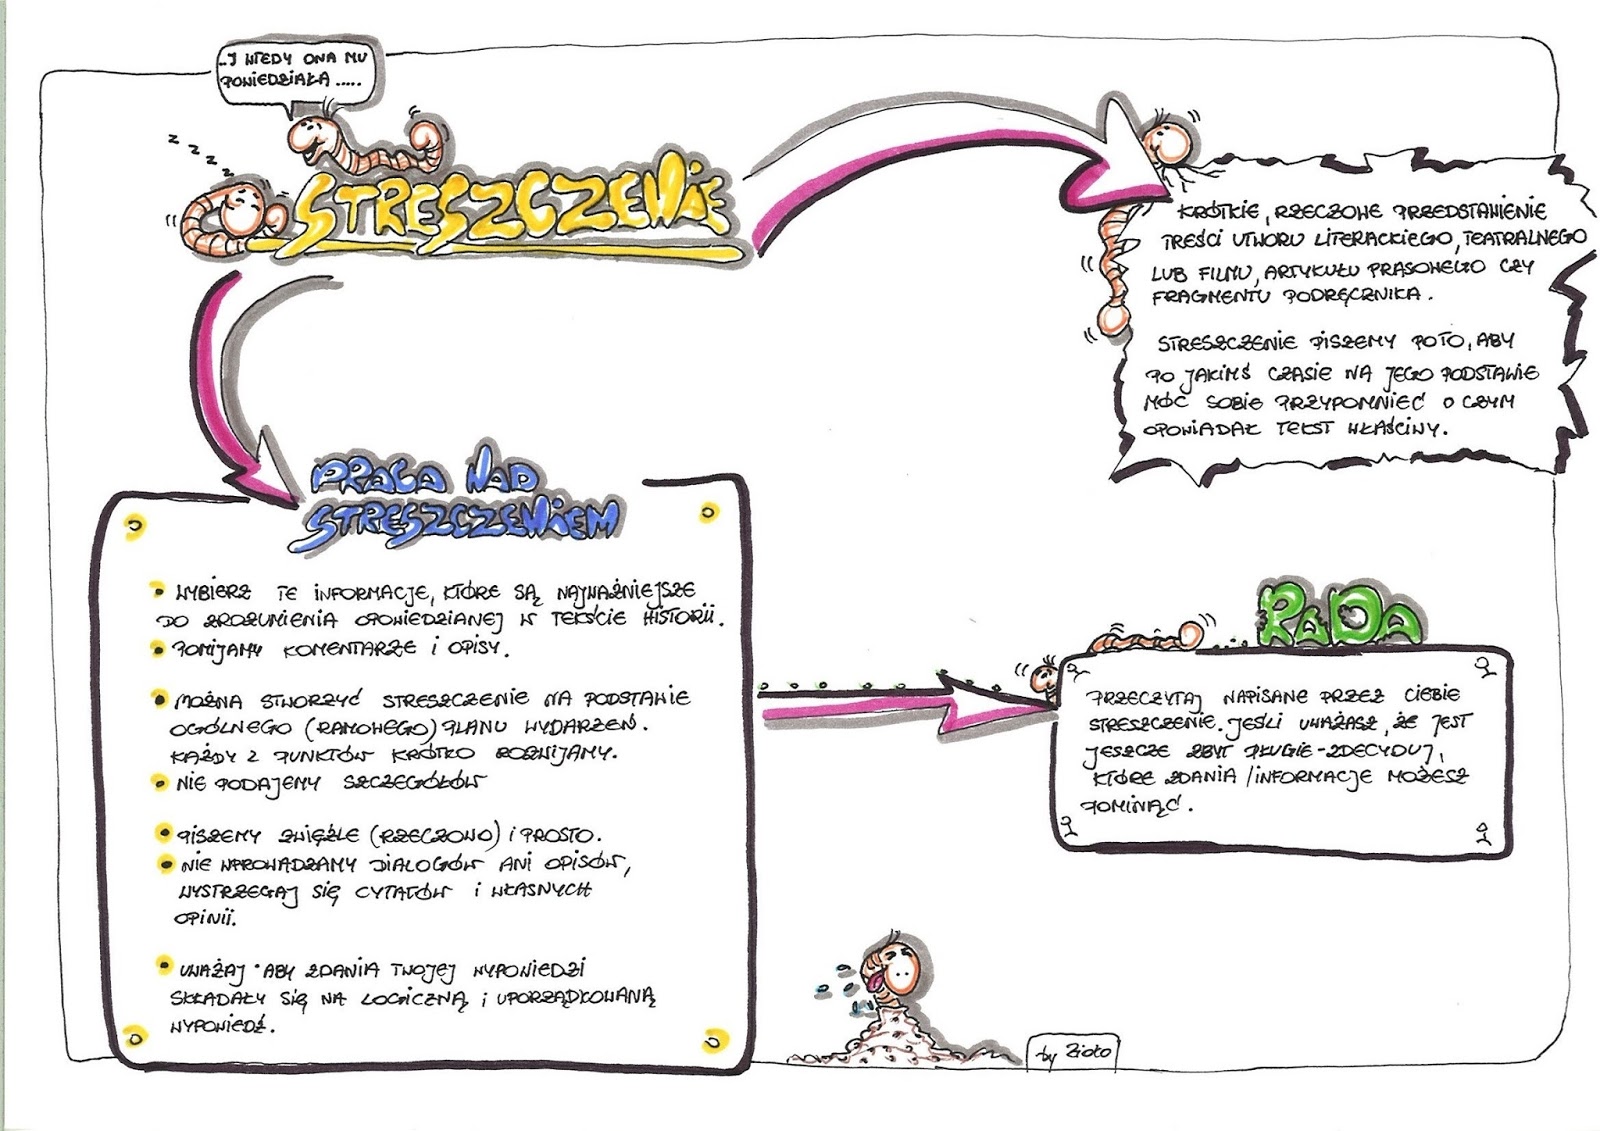 ..I WTEDY ONA MU
POWIEDZIAŁA .....
z z z z
STRESZCZENIE
KRÓTKIE, RZECZOWE PRZEDSTAWIENIE
TREŚCI UTWORU LITERACKIEGO, TEATRALNEGO
LUB FILMU, ARTYKUŁU PRASOWEGO CZY
FRAGMENTU PODRĘCZNIKA.
STRESZCZENIE PISZEMY POTO, ABY
PO JAKIMŚ CZASIE NA JEGO PODSTAWIE
MÓC SOBIE PRZYPOMNIEĆ O CZYM
OPOWIADAŁ TEKST WŁAŚCIWY.
PRACA NAD
STRESZCZENIEM
• WYBIERZ TE INFORMACJE, KTÓRE SĄ NAJWAŻNIEJSZE
DO ZROZUMIENIA OPOWIEDZIANEJ W TEKŚCIE HISTORII.
• POMIJAMY KOMENTARZE I OPISY.
• MOŻNA STWORZYĆ STRESZCZENIE NA PODSTAWIE
OGÓLNEGO (RAMOWEGO) PLANU WYDARZEŃ.
KAŻDY Z PUNKTÓW KRÓTKO ROZWIJAMY.
• NIE PODAJEMY SZCZEGÓŁÓW
• PISZEMY ZWIĘŹLE (RZECZOWO) I PROSTO.
• NIE WPROWADZAMY DIALOGÓW ANI OPISÓW,
WYSTRZEGAJ SIĘ CYTATÓW I WŁASNYCH
OPINII.
• UWAŻAJ ABY ZDANIA TWOJEJ WYPOWIEDZI
SKŁADAŁY SIĘ NA LOGICZNĄ I UPORZĄDKOWANĄ
WYPOWIEDŹ.
RADA
PRZECZYTAJ NAPISANE PRZEZ CIEBIE
STRESZCZENIE. JEŚLI UWAŻASZ, ŻE JEST
JESZCZE ZBYT DŁUGIE - ZDECYDUJ,
KTÓRE ZDANIA / INFORMACJE MOŻESZ
POMINĄĆ.
by Zioło